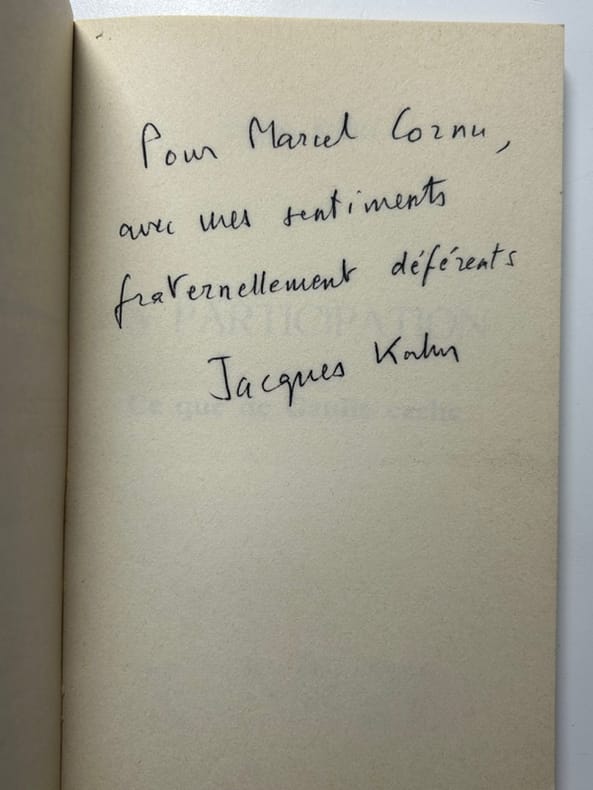 Pour Marcel Cornu,
avec mes sentiments
fraternellement déférents
Jacques Kahn
PARTICIPATION
Ce que de Gaulle cache